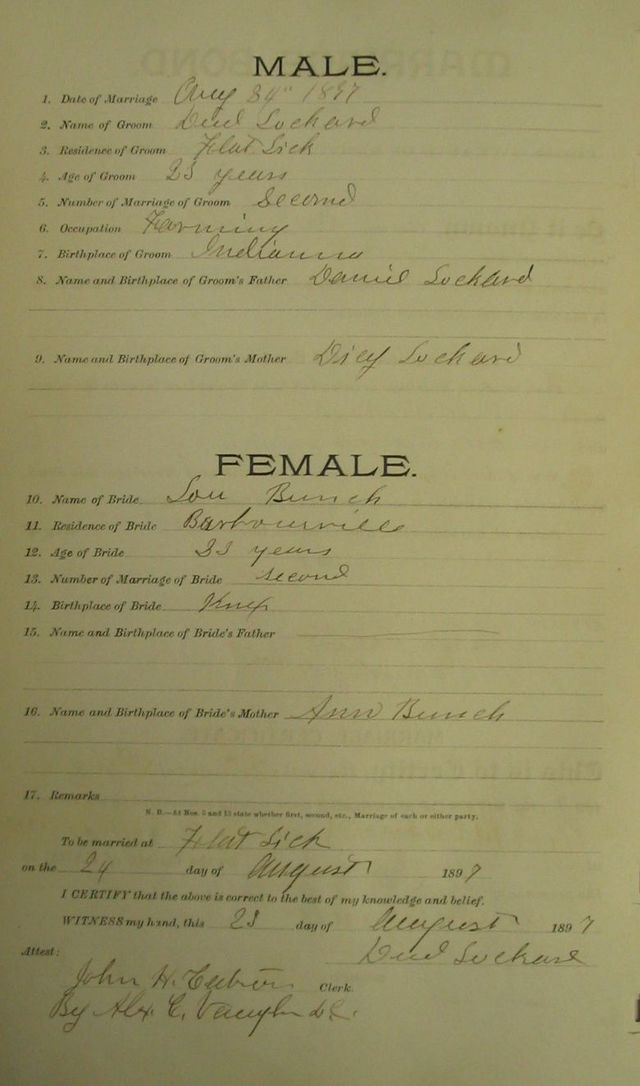 MALE.
1. Date of Marriage Aug 24" 1897
2. Name of Groom Dud Lockard
3. Residence of Groom Flat Lick
4. Age of Groom 23 years
5. Number of Marriage of Groom Second
6. Occupation Farming
7. Birthplace of Groom Indianna
8. Name and Birthplace of Groom's Father Daniel Lockard
9. Name and Birthplace of Groom's Mother Dicy Lockard
FEMALE.
10. Name of Bride Lou Bunch
11. Residence of Bride Barbourville
12. Age of Bride 23 years
13. Number of Marriage of Bride second
14. Birthplace of Bride Knox
15. Name and Birthplace of Bride's Father
16. Name and Birthplace of Bride's Mother Ann Bunch
17. Remarks
N. B.—At Nos. 5 and 13 state whether first, second, etc., Marriage of each or either party.
To be married at Flat Lick
on the 24 day of August 1897
I CERTIFY that the above is correct to the best of my knowledge and belief.
WITNESS my hand, this 23 day of August 1897
Dud Lockard
Attest:
John H. Clerk.
By Alex. C. Vaughn D.C.